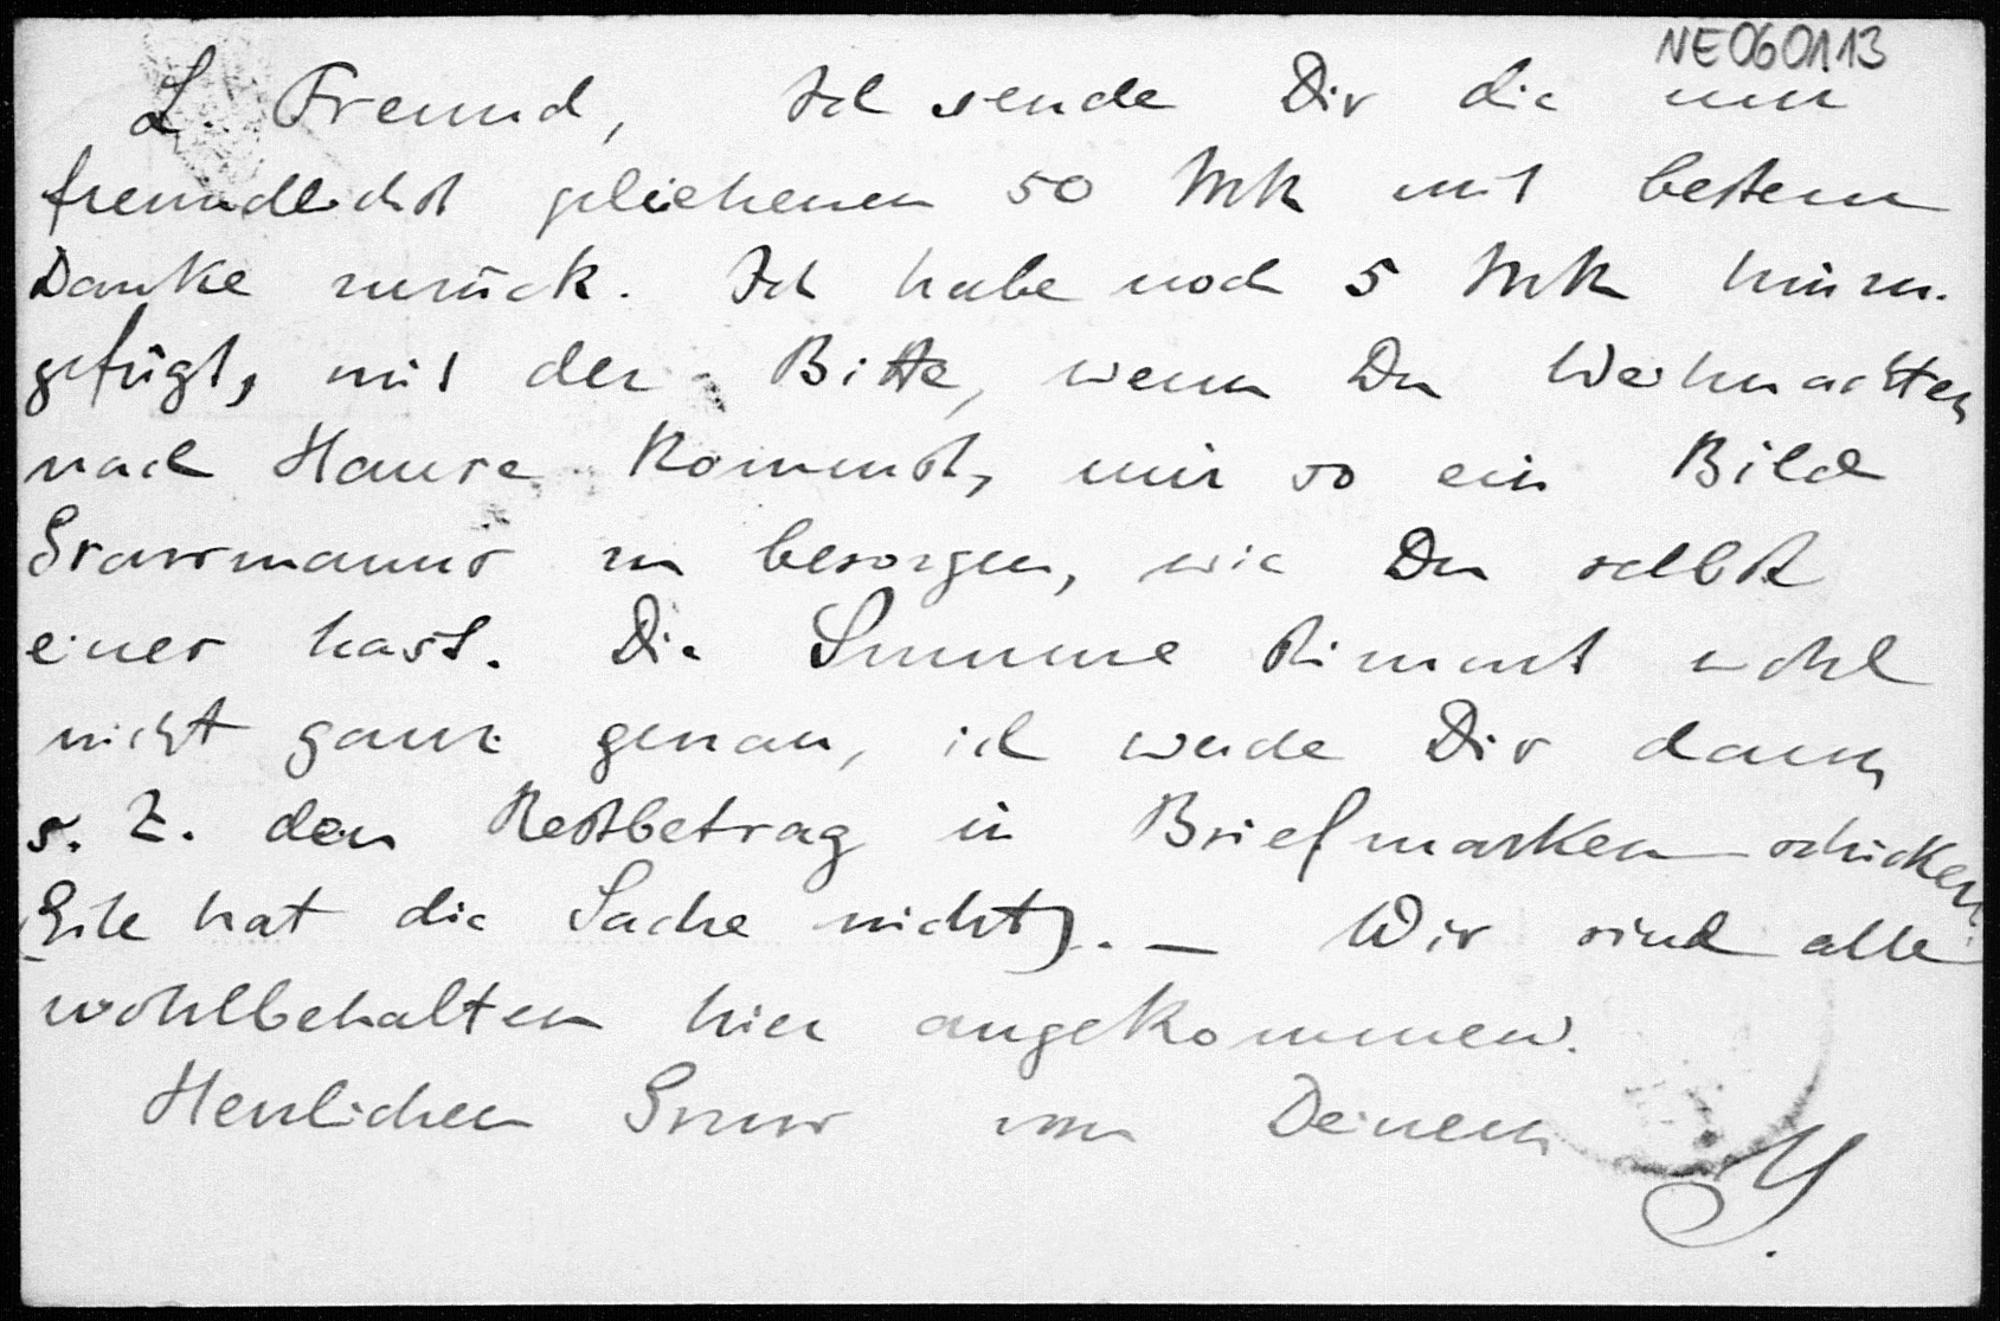 NE060113
L. Freund, Ich sende Dir die mir
freundlichst geliehenen 50 Mk mit bestem
Danke zurück. Ich habe noch 5 Mk hinzu-
gefügt, mit der Bitte, wenn Du Weihnachten
nach Hause kommst, mir so ein Bild
Grassmanns zu besorgen, wie Du selbst
eines hast. Die Summe stimmt wohl
nicht ganz genau, ich werde Dir dann
s. Z. den Restbetrag in Briefmarken schicken.
(Eile hat die Sache nicht). — Wir sind alle
wohlbehalten hier angekommen.
Herzlichen Gruss von Deinem